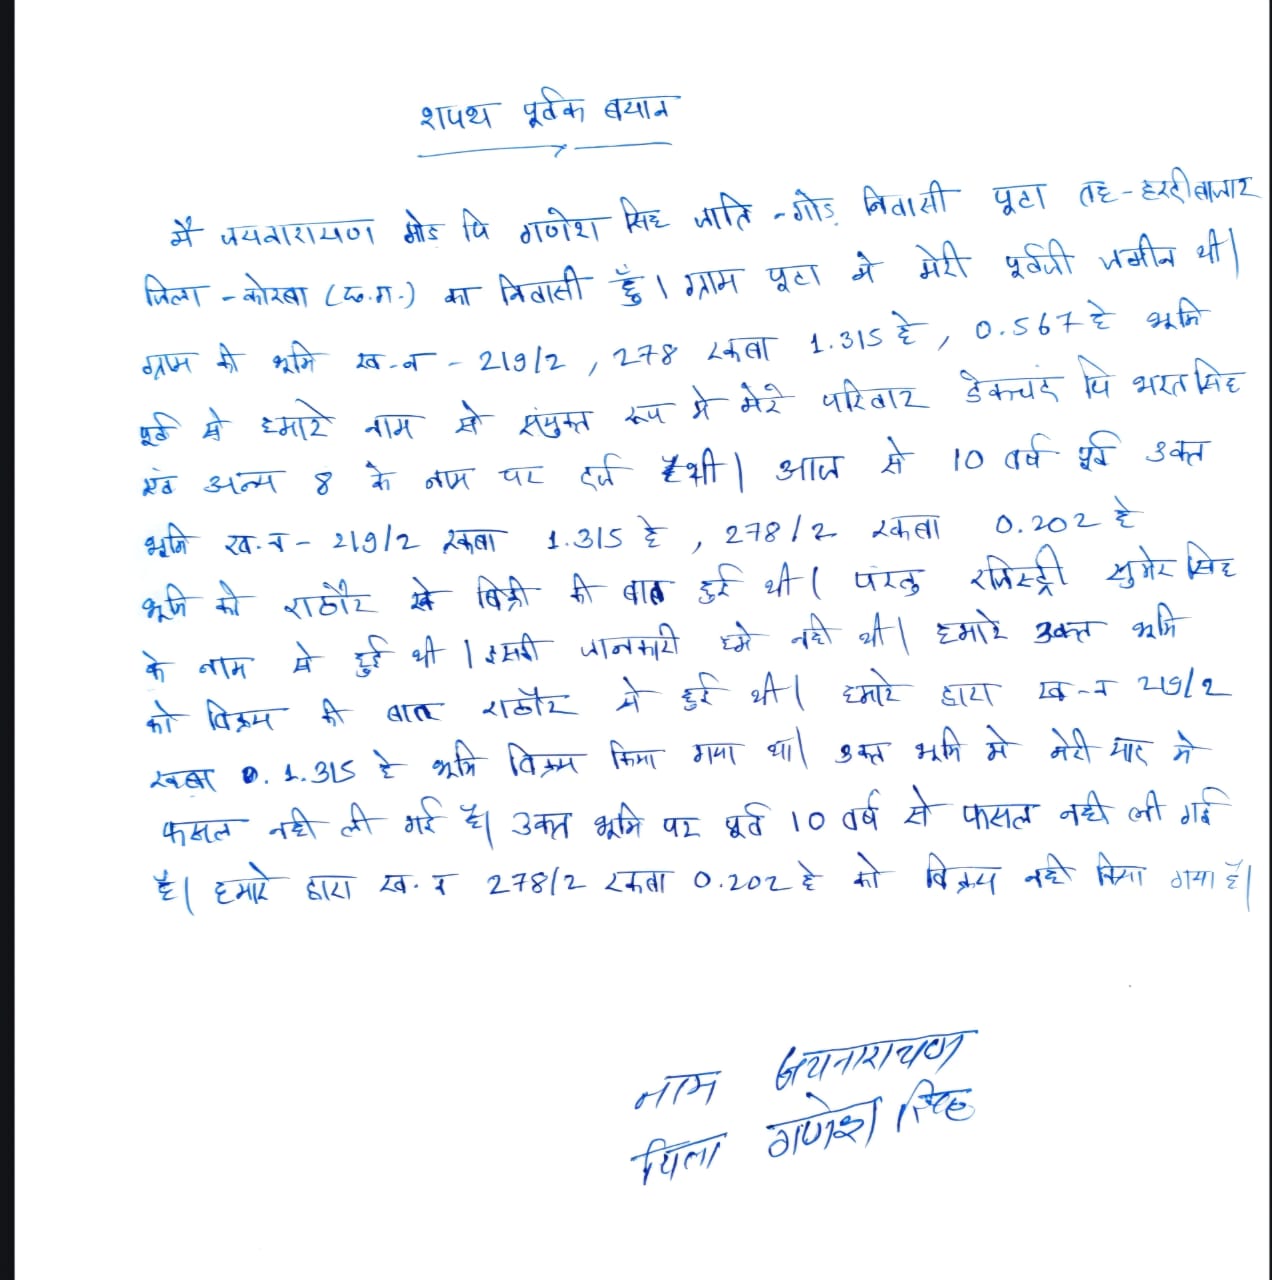 शपथ पूर्वक बयान
मै जयनारायण गोड़ पि गणेश सिंह जाति - गोड़ निवासी पूटा तह - हरदीबाजार
जिला - कोरबा (छ.ग.) का निवासी हूँ। ग्राम पूटा मे मेरी पूर्वजी जमीन थी।
ग्राम की भूमि ख.न - 219/2 , 278 रकबा 1.315 हे , 0.567 हे भूमि
पूर्व मे हमारे नाम से संयुक्त रूप मे मेरे परिवार डेकचंद पि भरत सिंह
एवं अन्य 8 के नाम पर दर्ज थी। आज से 10 वर्ष पूर्व उक्त
भूमि ख.न - 219/2 रकबा 1.315 हे , 278/2 रकबा 0.202 हे
भूमि को राठौर से बिक्री की बात हुई थी। परंतु रजिस्ट्री सुमेर सिंह
के नाम से हुई थी। इसकी जानकारी हमे नही थी। हमारे उक्त भूमि
को विक्रय की बात राठौर से हुई थी। हमारे द्वारा ख-न 219/2
रकबा 1.315 हे भूमि विक्रय किया गया था। उक्त भूमि मे मेरी याद मे
फसल नही ली गई है। उक्त भूमि पर पूर्व 10 वर्ष से फसल नही ली गई
है। हमारे द्वारा ख.न 278/2 रकबा 0.202 हे को विक्रय नही किया गया है।
नाम जयनारायण
पिता गणेश सिंह